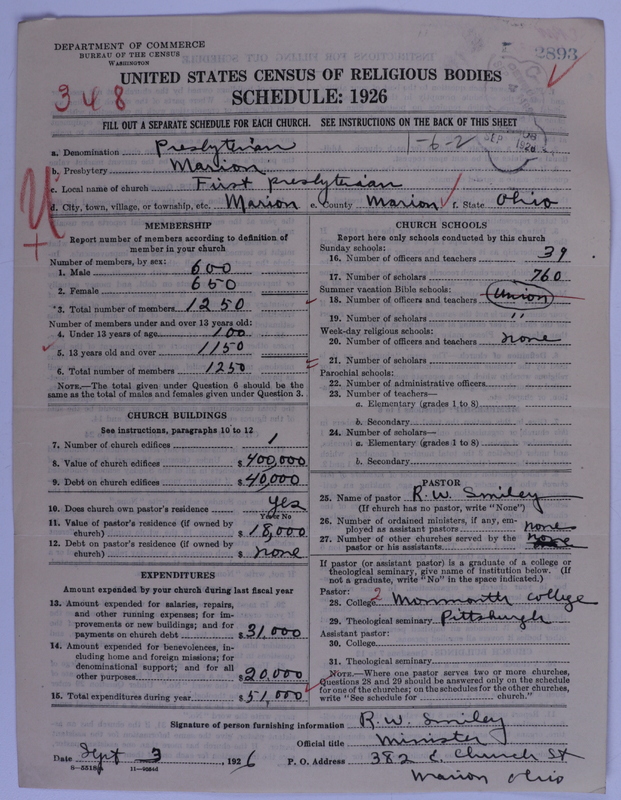 DEPARTMENT OF COMMERCE
BUREAU OF THE CENSUS
WASHINGTON
2893
UNITED STATES CENSUS OF RELIGIOUS BODIES
348
SCHEDULE: 1926
FILL OUT A SEPARATE SCHEDULE FOR EACH CHURCH. SEE INSTRUCTIONS ON THE BACK OF THIS SHEET
a. Denomination Presbyterian 1-6-2
SEP 1926
b. Presbytery Marion
c. Local name of church First Presbyterian
d. City, town, village, or township, etc. Marion e. County Marion f. State Ohio
MEMBERSHIP
Report number of members according to definition of
member in your church
Number of members, by sex:
1. Male 600
2. Female 650
*3. Total number of members 1250
Number of members under and over 13 years old:
4. Under 13 years of age 100
5. 13 years old and over 1150
6. Total number of members 1250
NOTE.—The total given under Question 6 should be
same as the total of males and females given under Question 3.
CHURCH BUILDINGS
See instructions, paragraphs 10 to 12
7. Number of church edifices 1
8. Value of church edifices $400,000
9. Debt on church edifices $40,000
10. Does church own pastor's residence yes
Yes or No
11. Value of pastor's residence (if owned by
church) $18,000
12. Debt on pastor's residence (if owned by
church) $ none
EXPENDITURES
Amount expended by your church during last fiscal year
13. Amount expended for salaries, repairs,
and other running expenses; for im-
provements or new buildings; and for
payments on church debt $31,000
14. Amount expended for benevolences, in-
cluding home and foreign missions; for
denominational support; and for all
other purposes $20,000
15. Total expenditures during year $51,000
CHURCH SCHOOLS
Report here only schools conducted by this church
Sunday schools:
16. Number of officers and teachers 39
17. Number of scholars 760
Summer vacation Bible schools:
18. Number of officers and teachers Union
19. Number of scholars "
Week-day religious schools:
20. Number of officers and teachers none
21. Number of scholars
Parochial schools:
22. Number of administrative officers
23. Number of teachers—
a. Elementary (grades 1 to 8)
b. Secondary
24. Number of scholars—
a. Elementary (grades 1 to 8)
b. Secondary
PASTOR
25. Name of pastor R. W. Smiley
(If church has no pastor, write "None")
26. Number of ordained ministers, if any, em-
ployed as assistant pastors none
27. Number of other churches served by the
pastor or his assistants none
If pastor (or assistant pastor) is a graduate of a college or
theological seminary, give name of institution below. (If
not a graduate, write "No" in the space indicated.)
Pastor:
28. College 2 Monmouth College
29. Theological seminary Pittsburgh
Assistant pastor:
30. College
31. Theological seminary
NOTE.—Where one pastor serves two or more churches,
Questions 28 and 29 should be answered only on the schedule
for one of the churches; on the schedules for the other churches,
write "See schedule for church."
Signature of person furnishing information R. W. Smiley
Official title Minister
Date Sept 3, 1926 P. O. Address 382 E. Church St
8—5518a 11—9554d Marion Ohio